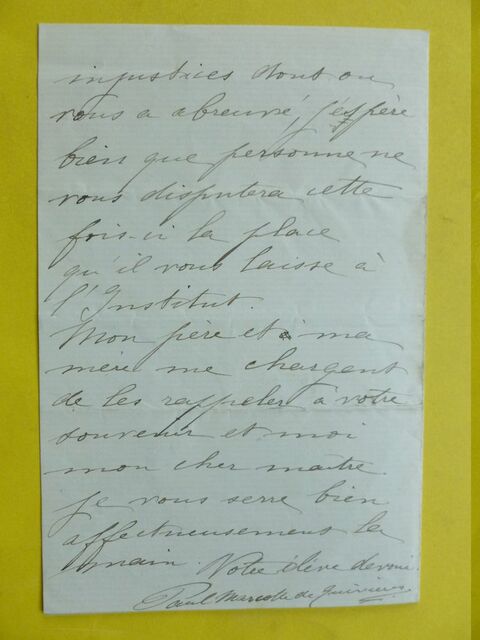 injustices dont on
vous a abreuvé, j'espère
bien que personne ne
vous disputera cette
fois-ci la place
qu'il vous laisse à
l'Institut.
Mon père et ma
mère me chargent
de les rappeler à votre
souvenir et moi
mon cher maître
je vous serre bien
affectueusement la
main Votre élève dévoué
Paul Marcotte de Quivières